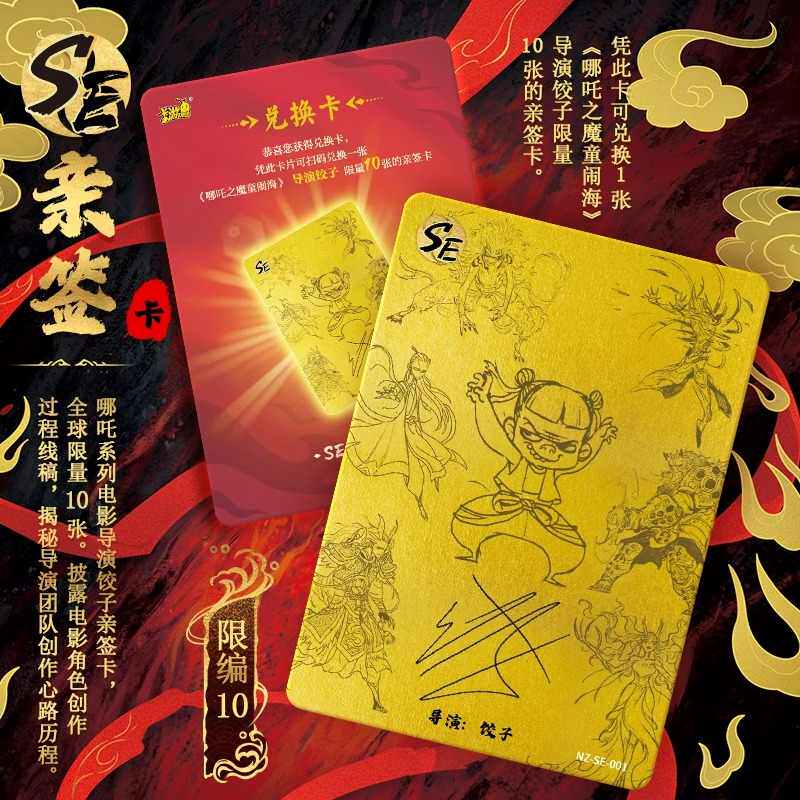 SE
亲签
卡
哪吒系列电影导演饺子亲签卡，
全球限量10张。披露电影角色创作
过程线稿，揭秘导演团队创作心路历程。
凭此卡可兑换1张
《哪吒之魔童闹海》
导演饺子限量
10张的亲签卡。
卡游
兑换卡
恭喜您获得兑换卡，
凭此卡片可扫码兑换一张
《哪吒之魔童闹海》 导演饺子 限量10张的亲签卡
SE
·SE
限编
10
SE
导演：饺子
NZ-SE-001